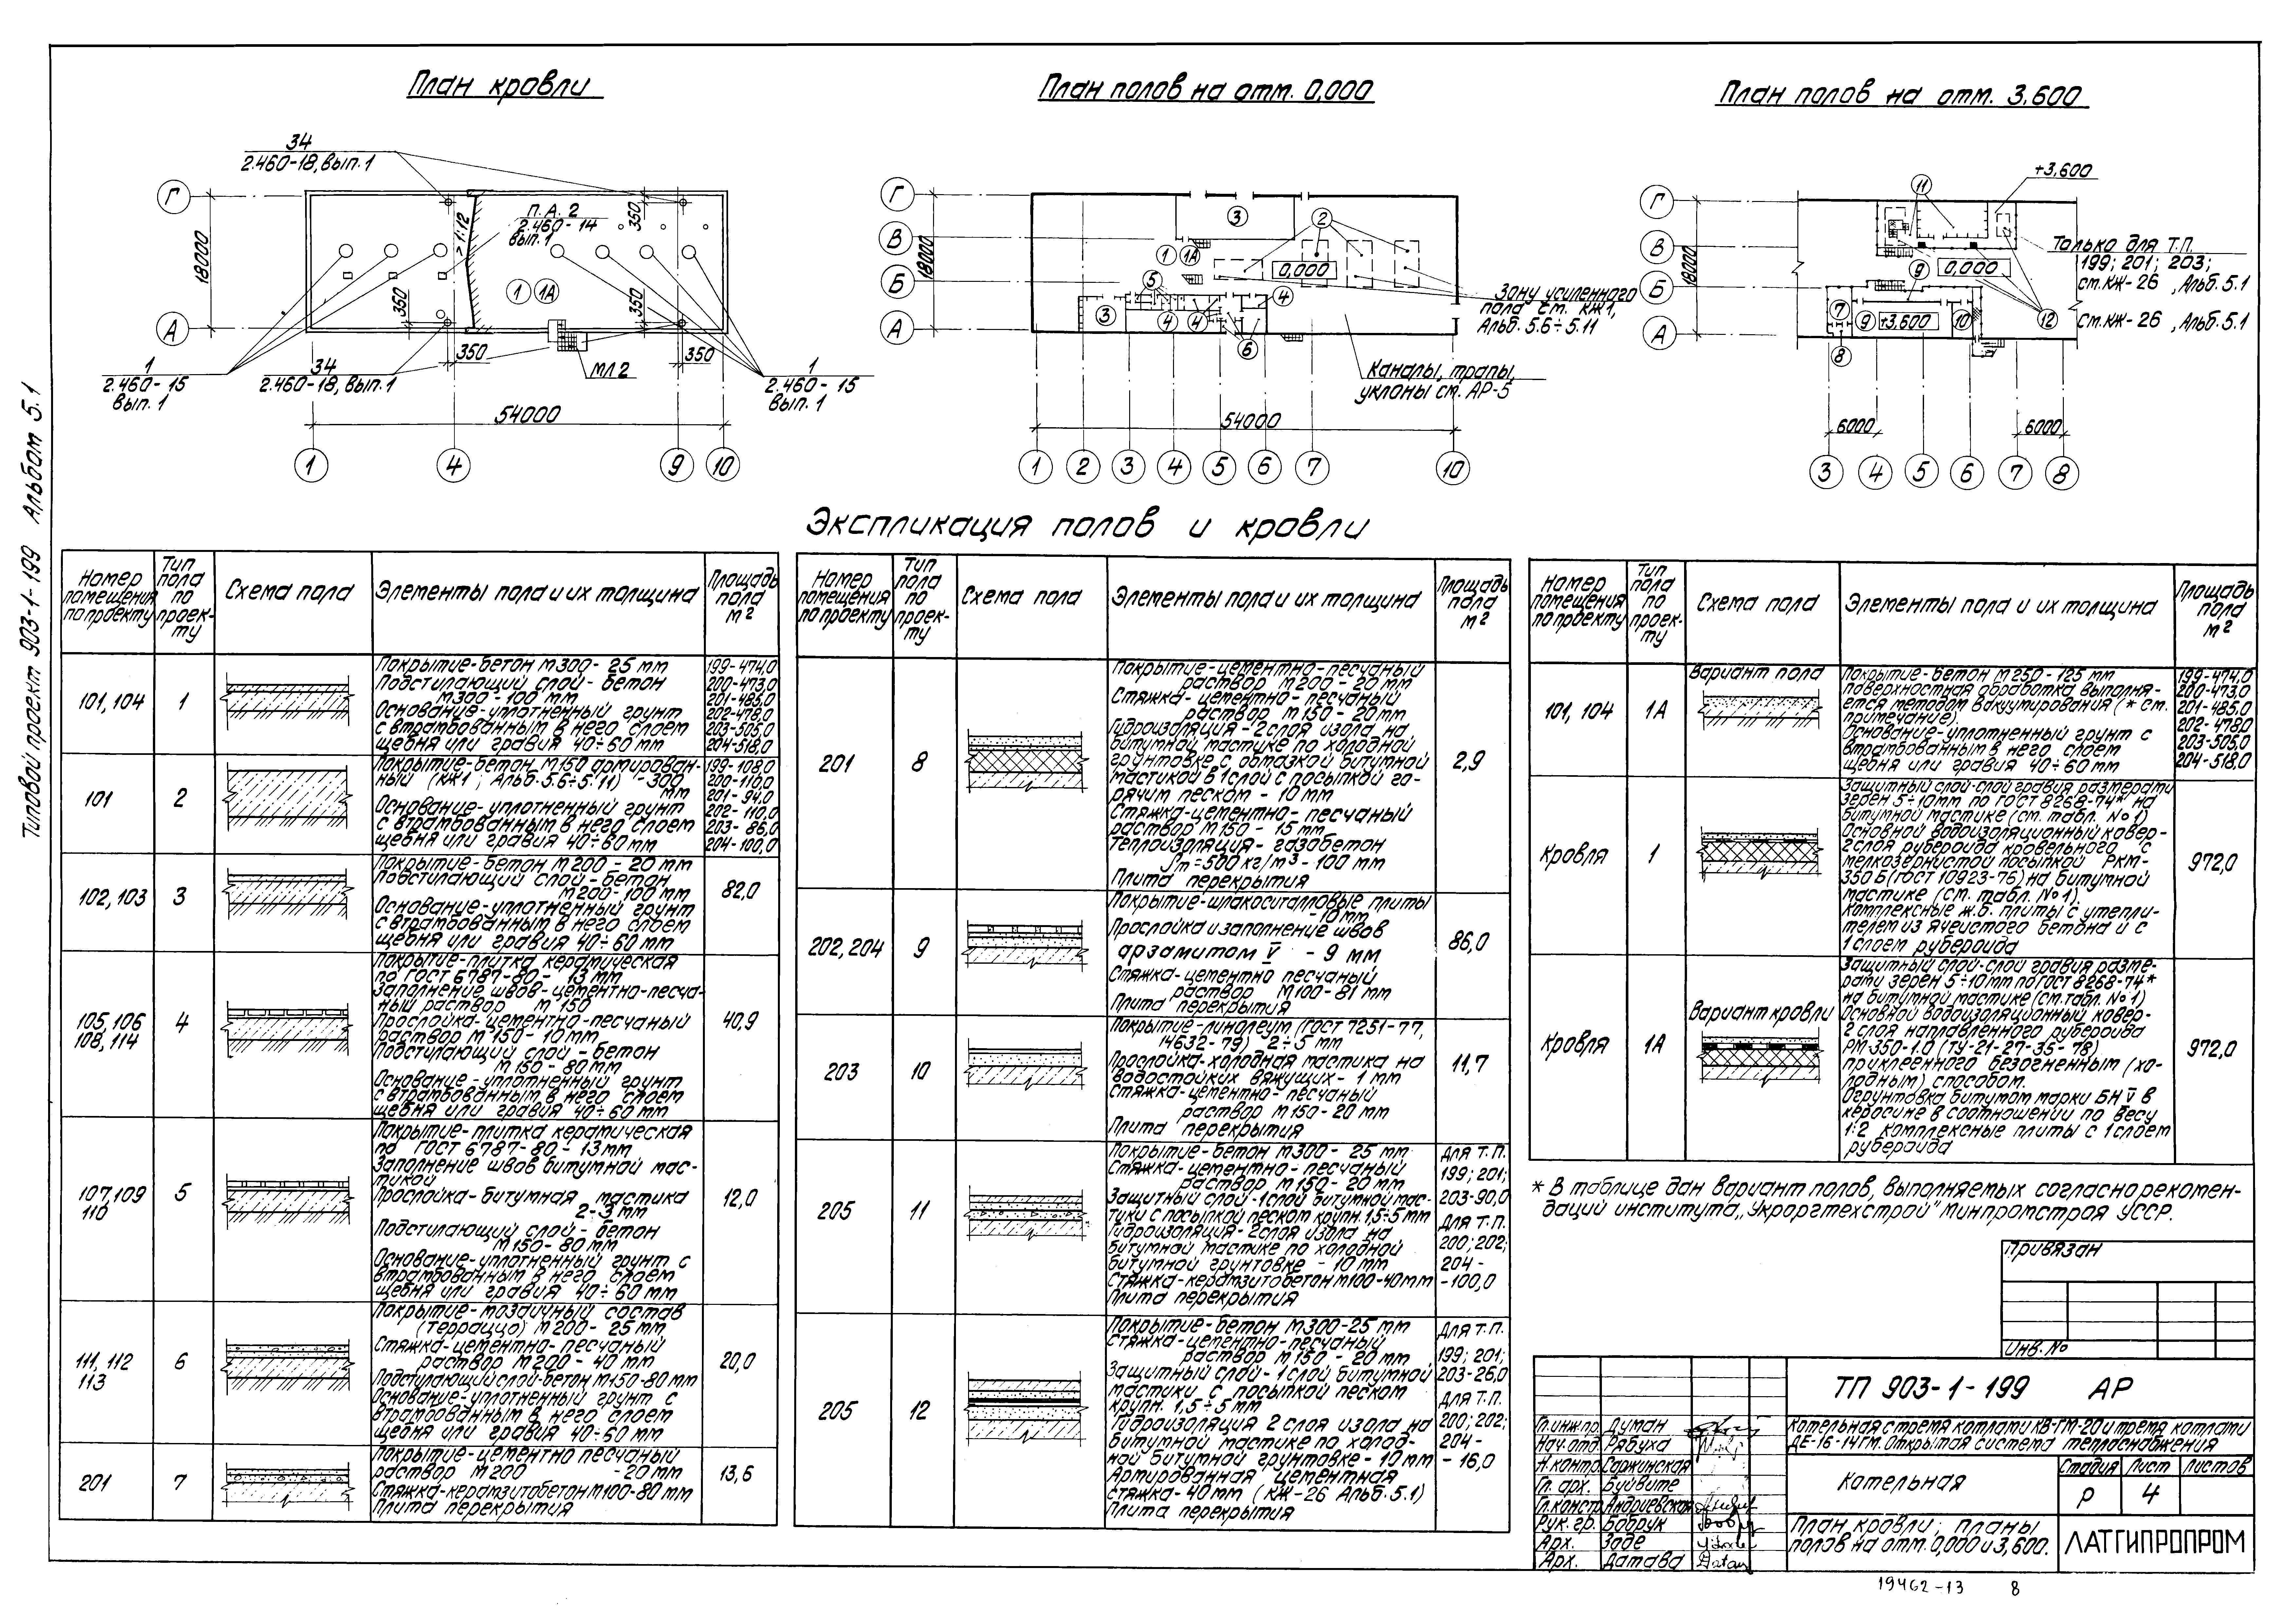 Типовой проект 903-1-199 Альбом 5.1
План кровли
34
2.460-18, вып.1
Г
А
18000
>1:12
П.А. 2
2.460-14
вып.1
350
350
350
350
350
1 1А
1
2.460-15
вып.1
34
2.460-18, вып.1
МЛ2
1
2.460-15
вып.1
54000
1 4 9 10
План полов на отм. 0,000
Г
В
Б
А
18000
3
2
1 1А
0,000
5
4
3
4 4
6
Зону усиленного
пола см. КЖ1,
Альб. 5.6÷5.11
Каналы, трапы,
уклоны см. АР-5
54000
1 2 3 4 5 6 7 10
План полов на отм. 3,600
+3,600
Г
В
Б
А
18000
11
Только для Т.П.
199; 201; 203;
см.КЖ-26, Альб.5.1
0,000
9
7
9 +3,600 10 12
8
см.КЖ-26, Альб.5.1
6000 6000
3 4 5 6 7 8
Экспликация полов и кровли
Номер помещения по проекту
Тип пола по проек-ту
Схема пола
Элементы пола и их толщина
Площадь пола м2
101, 104
1
Покрытие-бетон М300- 25 мм
Подстилающий слой- бетон
М300-100 мм
Основание-уплотненный грунт
с втрамбованным в него слоем
щебня или гравия 40÷60 мм
199-474,0
200-473,0
201-485,0
202-478,0
203-505,0
204-518,0
101
2
Покрытие-бетон М150 армирован-
ный (КЖ1; Альб.5.6÷5.11) -300
мм
Основание-уплотненный грунт
с втрамбованным в него слоем
щебня или гравия 40÷60 мм
199-108,0
200-110,0
201-94,0
202-110,0
203-86,0
204-100,0
102, 103
3
Покрытие-бетон М200-20 мм
Подстилающий слой-бетон
М200-100 мм
Основание-уплотненный грунт
с втрамбованным в него слоем
щебня или гравия 40÷60 мм
82,0
105, 106
108, 114
4
Покрытие-плитка керамическая
по ГОСТ 6787-80- 13 мм
Заполнение швов-цементно-песча-
ный раствор М 150
Прослойка-цементно-песчаный
раствор М 150-10 мм
Подстилающий слой - бетон
М 150-80 мм
Основание-уплотненный грунт
с втрамбованным в него слоем
щебня или гравия 40÷60 мм
40,9
107, 109
110
5
Покрытие-плитка керамическая
по ГОСТ 6787-80-13 мм
Заполнение швов битумной мас-
тикой
Прослойка-битумная мастика
2-3 мм
Подстилающий слой- бетон
М 150-80 мм
Основание-уплотненный грунт с
втрамбованным в него слоем
щебня или гравия 40÷60 мм
12,0
111, 112
113
6
Покрытие-мозаичный состав
(терраццо) М200- 25 мм
Стяжка-цементно-песчаный
раствор М200- 40 мм
Подстилающий слой-бетон М150-80 мм
Основание-уплотненный грунт с
втрамбованным в него слоем
щебня или гравия 40÷60 мм
20,0
201
7
Покрытие-цементно песчаный
раствор М200 -20 мм
Стяжка-керамзитобетон М100-80 мм
Плита перекрытия
13,6
Номер помещения по проекту
Тип пола по проек-ту
Схема пола
Элементы пола и их толщина
Площадь пола м2
201
8
Покрытие-цементно-песчаный
раствор М200-20 мм
Стяжка-цементно-песчаный
раствор М150-20 мм
Гидроизоляция-2слоя изола на
битумной мастике по холодной
грунтовке с обмазкой битумной
мастикой в 1слой с посыпкой го-
рячим песком - 10 мм
Стяжка-цементно-песчаный
раствор М150- 15 мм
Теплоизоляция-газобетон
ρт=500 кг/м3-100 мм
Плита перекрытия
2,9
202, 204
9
Покрытие-шлакоситалловые плиты
-10 мм
Прослойка и заполнение швов
арзамитом V - 9 мм
Стяжка-цементно песчаный
раствор М100-81 мм
Плита перекрытия
86,0
203
10
Покрытие-линолеум (ГОСТ 7251-77,
14632-79) -2÷5 мм
Прослойка-холодная мастика на
водостойких вяжущих- 1 мм
Стяжка-цементно-песчаный
раствор М150-20 мм
Плита перекрытия
11,7
205
11
Покрытие-бетон М300- 25 мм
Стяжка-цементно-песчаный
раствор М150-20 мм
Защитный слой-1слой битумной мас-
тики с посыпкой песком крупн.1,5÷5 мм
Гидроизоляция-2слоя изола на
битумной мастике по холодной
битумной грунтовке - 10 мм
Стяжка-керамзитобетон М100-40 мм
Плита перекрытия
для Т.П.
199; 201;
203-90,0
для Т.П.
200; 202;
204 -
-100,0
205
12
Покрытие-бетон М300-25 мм
Стяжка-цементно-песчаный
раствор М150 - 20 мм
Защитный слой-1слой битумной
мастики с посыпкой песком
крупн. 1,5÷5 мм
Гидроизоляция 2слоя изола на
битумной мастике по холод-
ной битумной грунтовке-10 мм
Армированная цементная
стяжка-40 мм (КЖ-26 Альб.5.1)
Плита перекрытия
для Т.П.
199; 201;
203-26,0
для Т.П.
200; 202;
204-
- 16,0
Номер помещения по проекту
Тип пола по проек-ту
Схема пола
Элементы пола и их толщина
Площадь пола м2
101, 104
1А
Вариант пола
Покрытие-бетон М250-125 мм
поверхностная обработка выполня-
ется методом вакуумирования (* см.
примечание).
Основание-уплотненный грунт с
втрамбованным в него слоем
щебня или гравия 40÷60 мм
199-474,0
200-473,0
201-485,0
202-478,0
203-505,0
204-518,0
Кровля
1
Защитный слой-слой гравия размерами
зерен 5÷10мм по ГОСТ 8268-74* на
битумной мастике (см. табл. №1)
Основной водоизоляционный ковер-
2слоя рубероида кровельного с
мелкозернистой посыпкой РКМ-
350Б(ГОСТ 10923-76) на битумной
мастике (см. табл. №1).
Комплексные ж.б. плиты с утепли-
телем из ячеистого бетона и с
1слоем рубероида
972,0
Кровля
1А
Вариант кровли
Защитный слой-слой гравия разме-
рами зерен 5÷10 мм по ГОСТ 8268-74*
на битумной мастике (см.табл. №1)
Основной водоизоляционный ковер-
2 слоя наплавленного рубероида
РМ-350-1.0 (ТУ-21-27-35-78)
приклеенного безогненным (хо-
лодным) способом.
Огрунтовка битумом марки БН V в
керосине в соотношении по весу
1:2 Комплексные плиты с 1слоем
рубероида
972,0
* В таблице дан вариант полов, выполняемых согласно рекомен-
даций института „Укроргтехстрой" Минпромстроя УССР.
Привязан
Инв. №
ТП 903-1-199 АР
Котельная с тремя котлами КВ-ГМ-20 и тремя котлами
ДЕ-16-14ГМ. Открытая система теплоснабжения
Гл.инж.пр. Думан
Нач.отд. Рябуха
Н.контр. Саржинская
Гл. арх. Буйвите
Гл.констр. Андриевская
Рук. гр. Бобрук
Арх. Заде
Арх. Датава
Котельная
Стадия Лист Листов
Р 4
План кровли; планы
полов на отм. 0,000 и 3,600.
ЛАТГИПРОПРОМ
19462-13 8